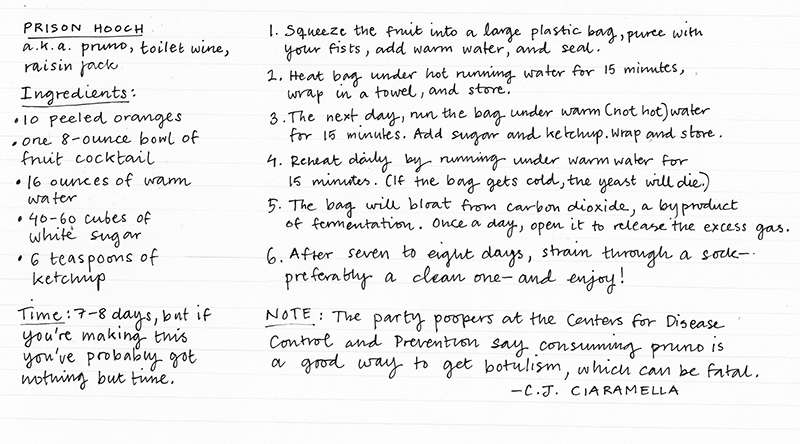 PRISON HOOCH
a.k.a. pruno, toilet wine,
raisin jack
Ingredients:
• 10 peeled oranges
• one 8-ounce bowl of
fruit cocktail
• 16 ounces of warm
water
• 40-60 cubes of
white sugar
• 6 teaspoons of
ketchup
Time: 7-8 days, but if
you're making this
you've probably got
nothing but time.
1. Squeeze the fruit into a large plastic bag, puree with
your fists, add warm water, and seal.
2. Heat bag under hot running water for 15 minutes,
wrap in a towel, and store.
3. The next day, run the bag under warm (not hot) water
for 15 minutes. Add sugar and ketchup. Wrap and store.
4. Reheat daily by running under warm water for
15 minutes. (If the bag gets cold, the yeast will die.)
5. The bag will bloat from carbon dioxide, a byproduct
of fermentation. Once a day, open it to release the excess gas.
6. After seven to eight days, strain through a sock—
preferably a clean one—and enjoy!
NOTE: The party poopers at the Centers for Disease
Control and Prevention say consuming pruno is
a good way to get botulism, which can be fatal.
—C.J. CIARAMELLA